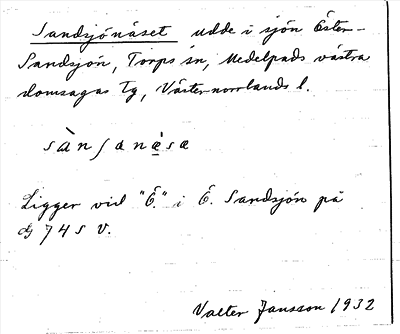 Sandsjönäset udde i sjön Öster-
Sandsjön, Torps sn, Medelpads västra
domsagas tg, Västernorrlands l.
sàn ʃanèsa
Ligger vid "Ö." i Ö. Sandsjön på
74 S V.
Valter Jansson 1932